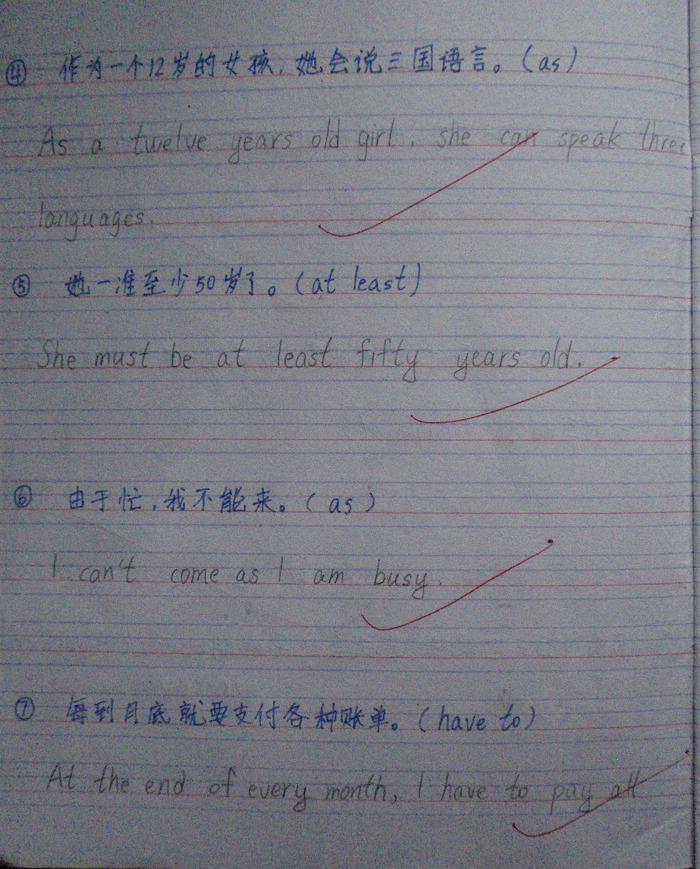 ④ 作为一个12岁的女孩,她会说三国语言。(as)
As a twelve years old girl, she can speak three
languages.
⑤ 她一准至少50岁了。(at least)
She must be at least fifty years old.
⑥ 由于忙,我不能来。(as)
I can't come as I am busy.
⑦ 每到月底就要支付各种账单。(have to)
At the end of every month, I have to pay all